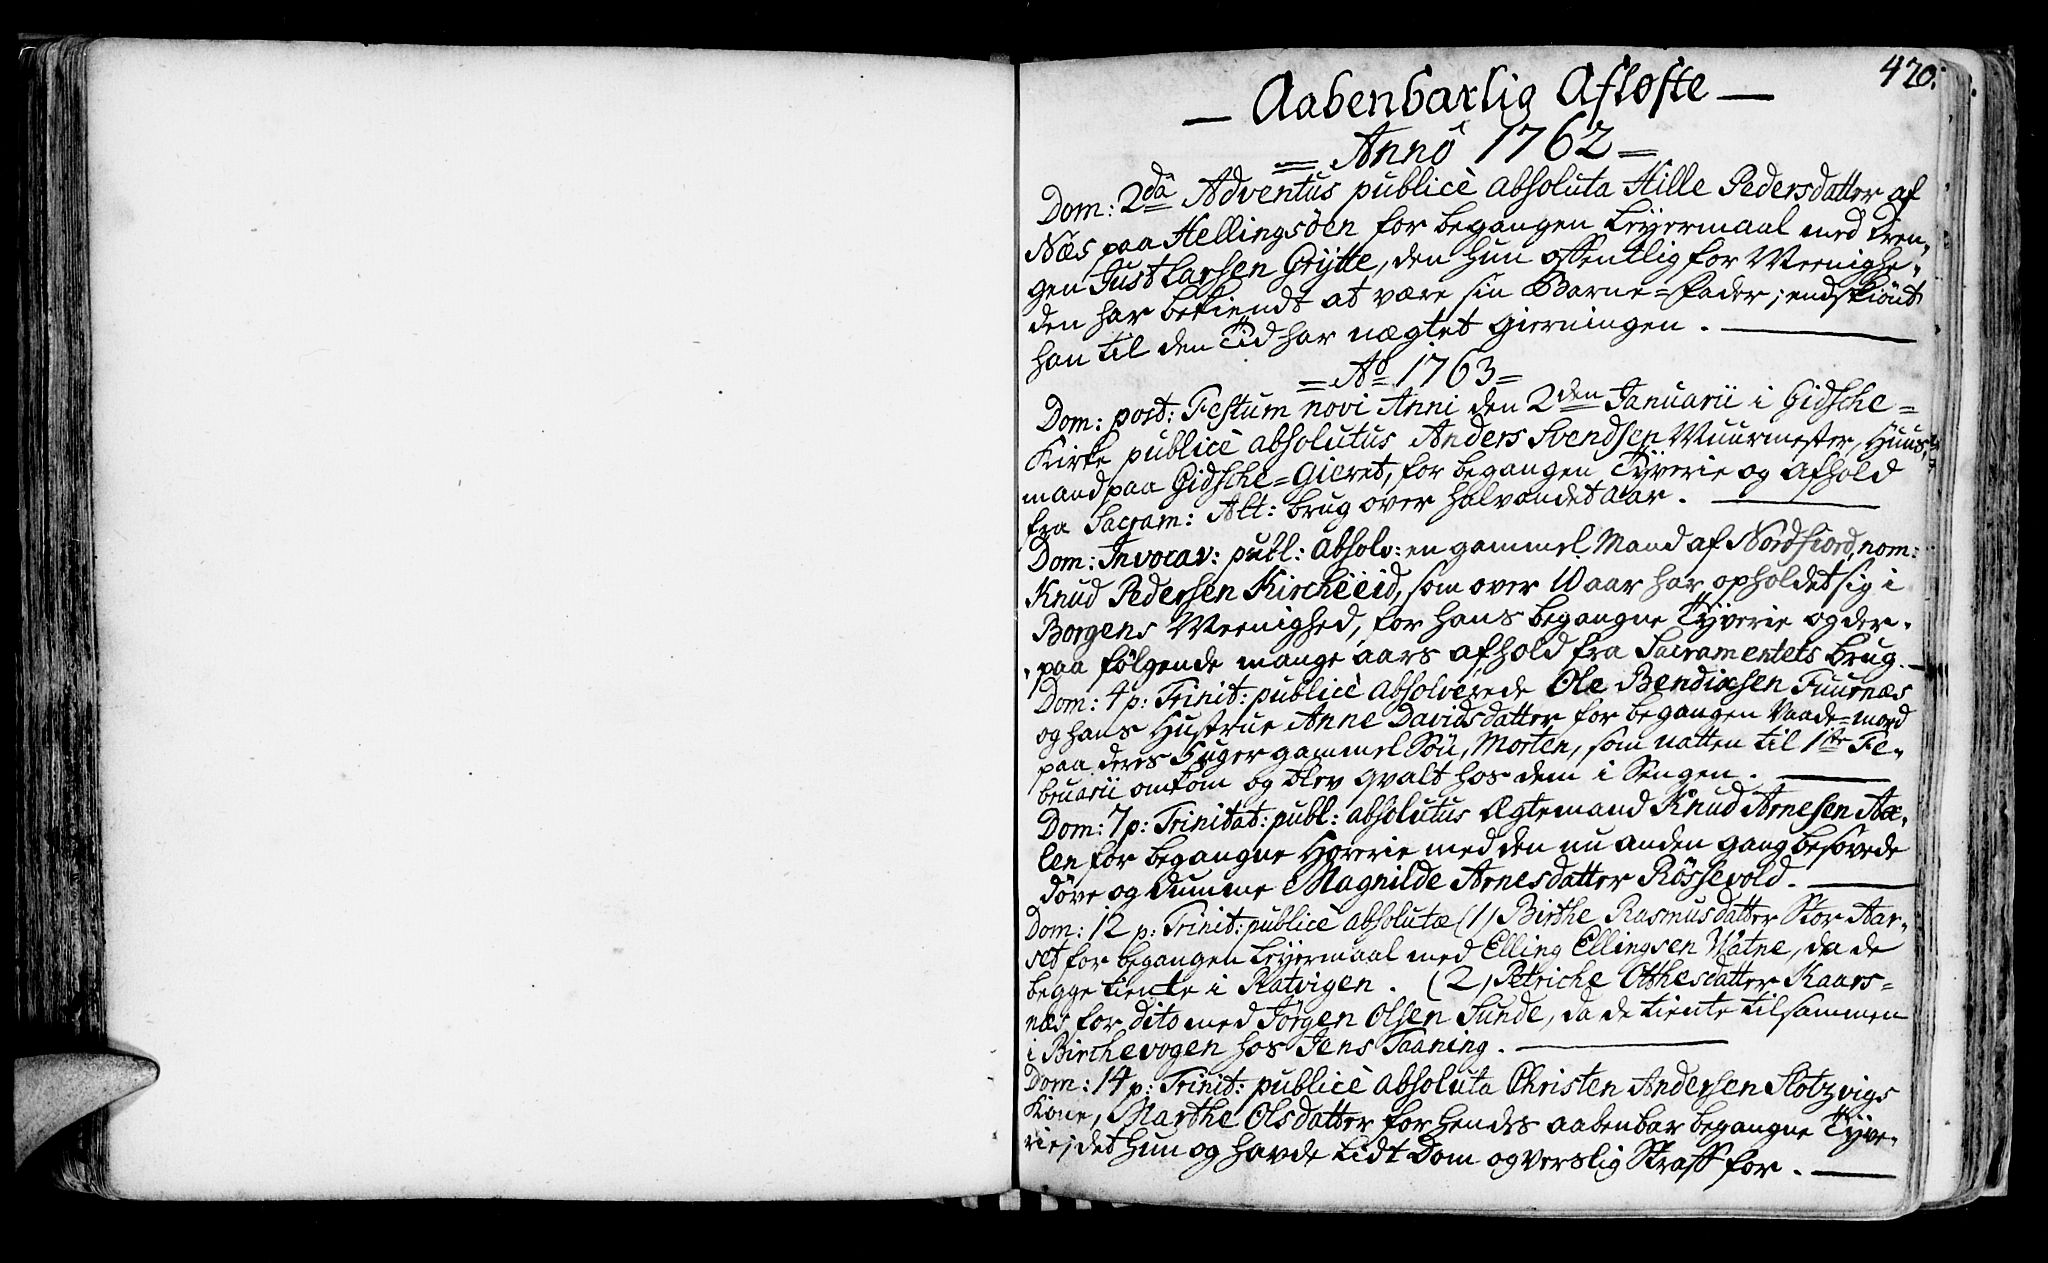 420.
— Aabenbarlig Afløste —
= Anno 1762 =
Dom: 2da Adventus publicè absoluta Hille Pedersdatter af
Næs paa Hellingsøen for begangen Leyermaal med Dren-
gen Just Larsen Grÿtte, den hun offentlig for Meenighe-
den har bekiendt at være sin Barne=Fader; endskiönt
han til den Tid har nægtet Gierningen.
= Ao 1763 =
Dom: post: Festum novi Anni den 2den Januarii i Gidsche=
Kirke publicè absolutus Anders Svendsen Muurmester, Huus-
mand paa Gidsche=Gieret, for begangen Tÿverie og Afhold
fra Sacram: Alt: brug over halvandet Aar.
Dom: Invocav: publ: Absolv: en gammel Mand af Nordfiord, nom:
Knud Pedersen Kircheeid, som over 10 aar har opholdet sig i
Borgens Meenighed, for hans begangne Tÿverie og der-
paa følgende mange aars afhold fra Sacramentets brug.
Dom: 4 p: Trinit: publicè Absolverede Ole Bendixsen Fuurnæs
og hans Hustrue Anne Davidsdatter for begangen Vaade=mord
paa deres 5 uger gammel Sön, Morten, som natten til 1ste Fe-
bruarii omkom og blev qvalt hos dem i Sengen.
Dom: 7 p: Trinitat: publ: absolutus Ægtemand Knud Arnesen Aa-
len for begangne Horerie med den nu anden gang besovede
döve og dumme Magnilde Arnesdatter Røssevold.
Dom: 12 p: Trinit: publicè absolutæ (1) Birthe Rasmusdatter Stor Aar-
set for begangen Leyermaal med Elling Ellingsen Watne, da de
begge tiente i Ratvigen. (2) Petriche Otthesdatter Kaars=
næs for dito med Jørgen Olsen Sunde, da de tiente tilsammen
i Birchevogen hos Jens Taaning.
Dom: 14 p: Trinit: publicè absoluta Christen Andersen Slotzvigs
Kone, Marthe Olsdatter for hendes aabenbar begangne Tÿve-
rie; det hun og havde lidt Dom og verslig Straff for.